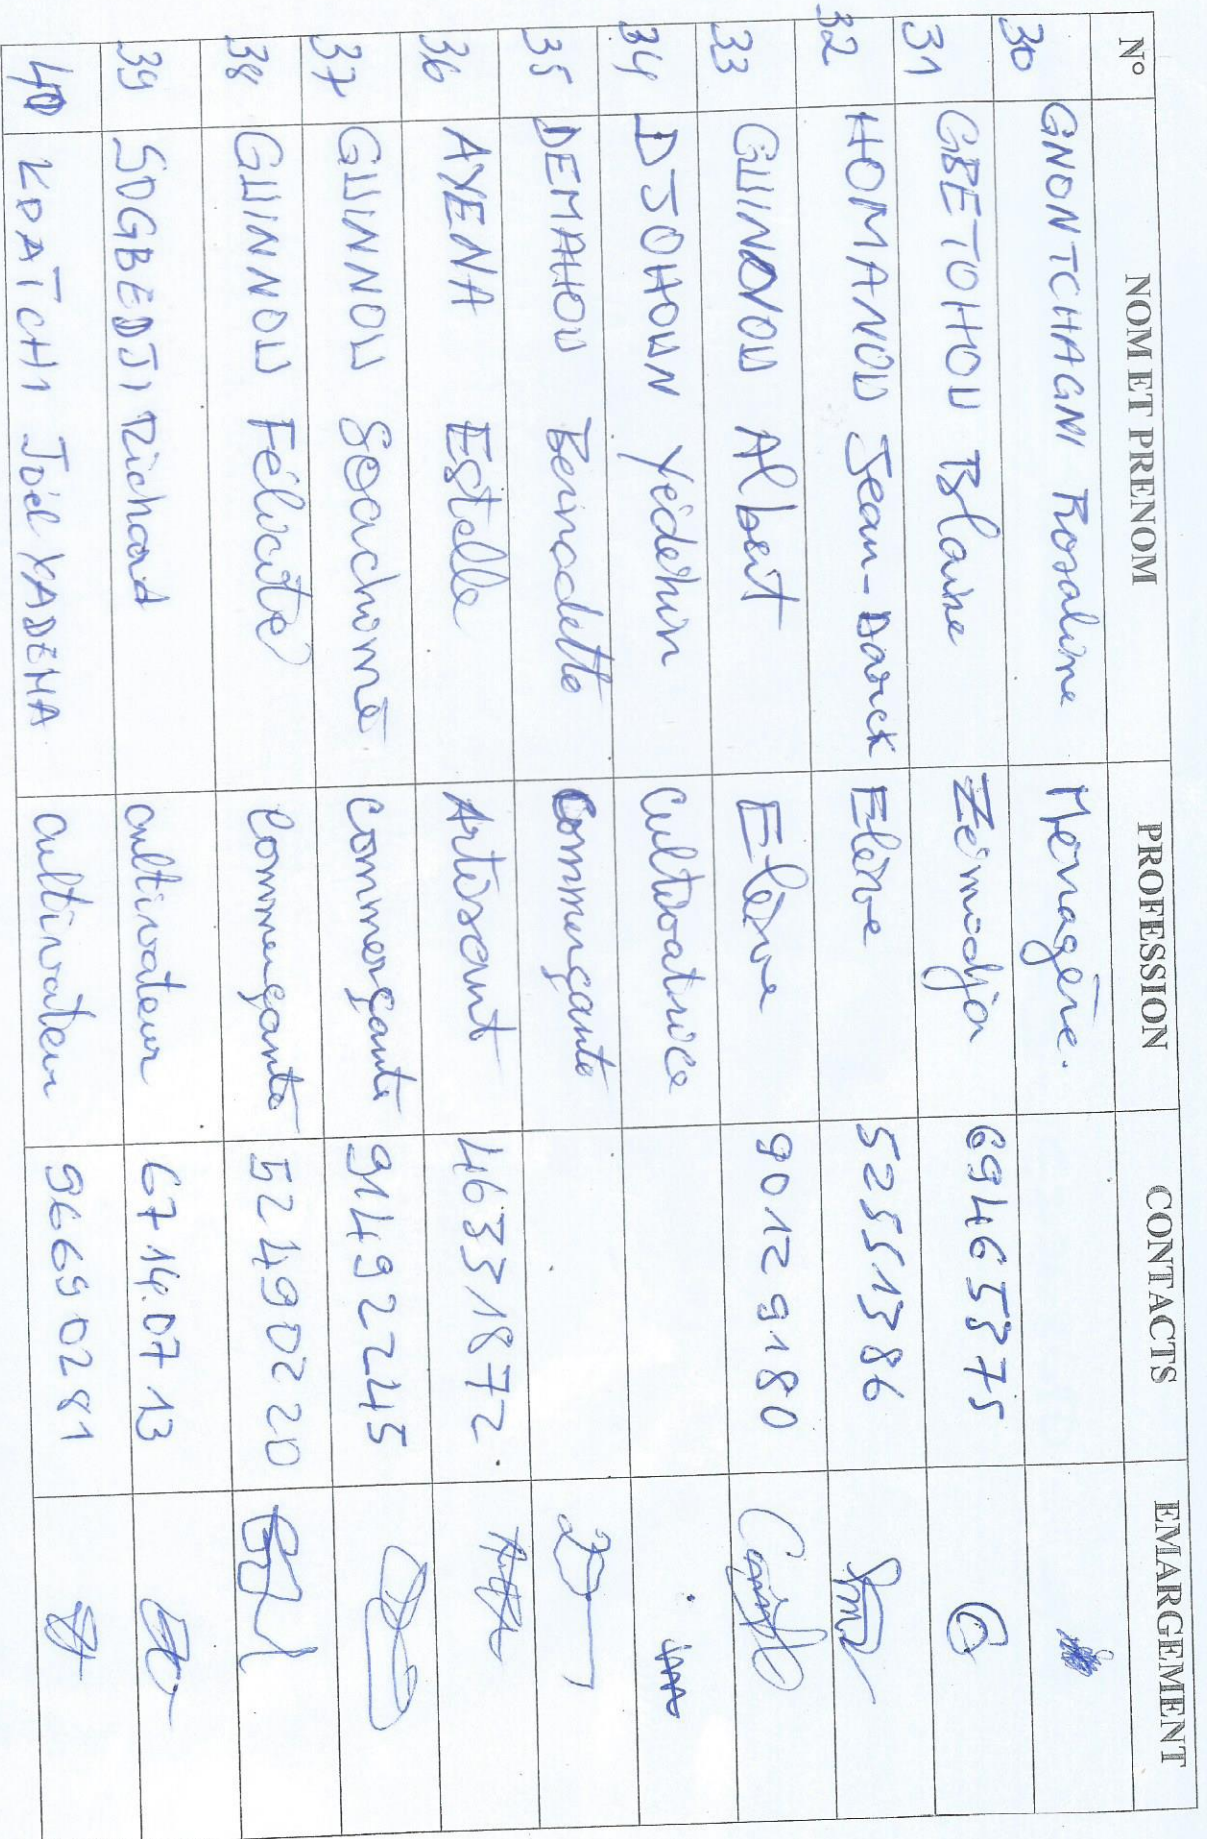 N° NOM ET PRENOM PROFESSION CONTACTS EMARGEMENT
30 GNONTCHAGNI Rosaline Ménagère.
31 GBETOHOU Blaise Zémidja 69465375
32 HOMANOU Jean-Darck Elève 52551386
33 GUINNOU Albert Elève 90129180
34 DJOHOUN Yédéhin Cultivatrice
35 DEMAHOU Bernadette Commerçante
36 AYENA Estelle Artisant 46331872.
37 GUINNOU Seachimè Commerçante 91492245
38 GUINNOU Félicité Commerçante 52490220
39 SOGBEDJI Richard cultivateur 67 14.07 13
40 KPATCHI Joël YADEMA cultivateur 96690281